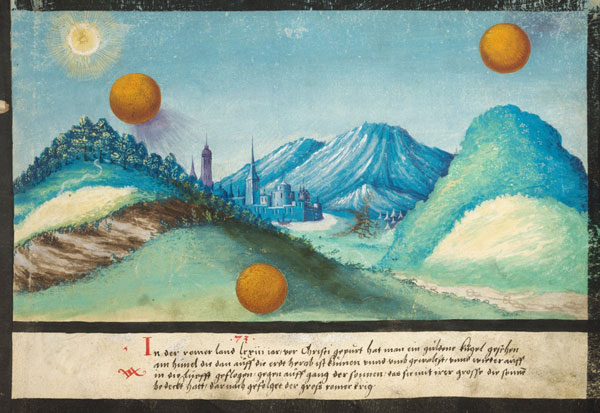 73
In der romer land lxxiii iar vor Christi gepurt hat man ein guldene kugel gesehen
am himel die dan auff die erdt herab ist kumen vnnd vmb gewalzt, vnnd wider auff
in die lufft geflogen, gegen auff gang der sonnen, das sie mit irer grosse die sonn
bedeckt hatt, darnach gefolget der gross romer krig.